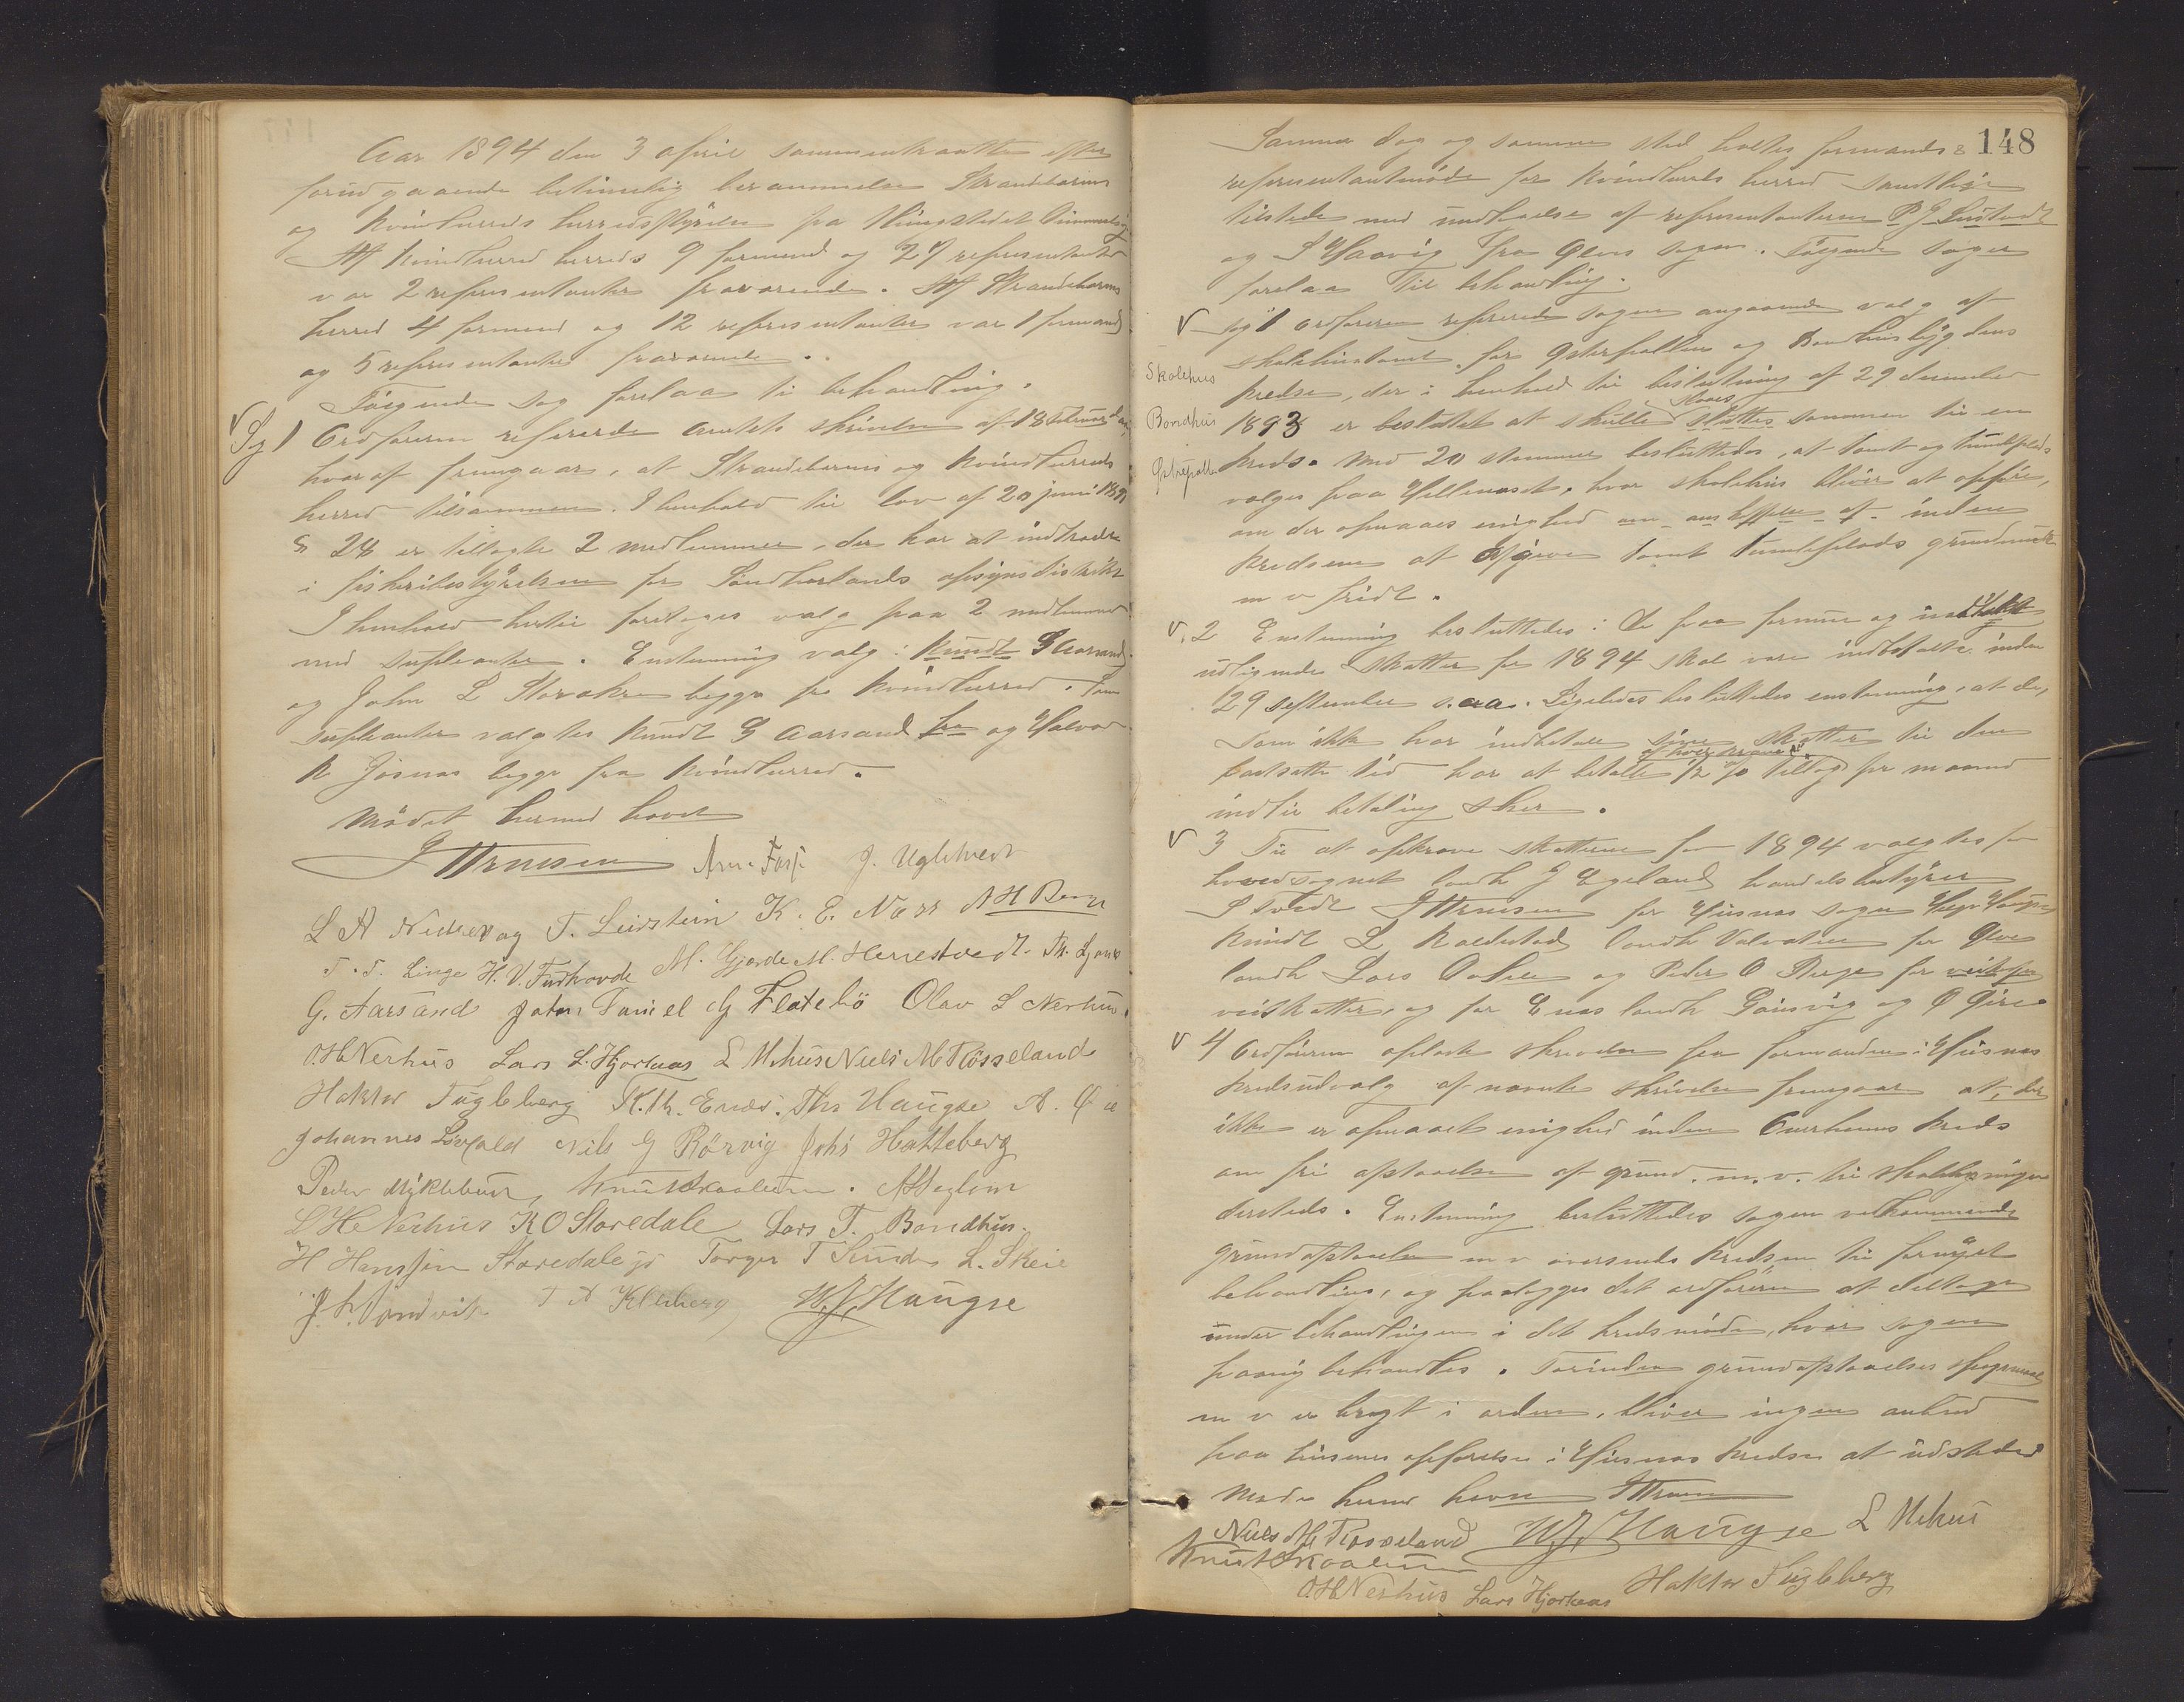 Aar 1894 den 3 april sammentraatte efter
forudgaaende betimelig berammelse Strandebarms
og Kvindherreds herredsstyrelse paa thingstedet
Af Kvindherred herreds 9 formænd og 27 repræsentanter
var 2 repræsentanter fraværende. Af Strandebarms
herred 4 formænd og 12 repræsentanter var 1 formand
og 5 repræsentanter fraværende.
Følgende sag forelaa til behandling.
Sag 1 Ordføreren refererede amtets skrivelse af 18 februar
hvoraf fremgaar, at Strandebarms og Kvindherreds
herred tilsammen I henhold til lov af 20 juni 1891
§ 28 er tillagte 2 medlemmer, der har at indtræde
i fiskeribestyrelsen for Søndhorlands opsynsdistrikt
I henhold hertil foretages valg paa 2 medlemmer
med supleanter. Enstemmig valg: Knudt
og John L Storakre begge fra Kvindherred. Som
supleanter valgtes Knudt G Aarsand fra og Halvor
K Jøsnæs begge fra Kvindherred.
Mødet hermed hævet
Arne J. Uglehvedt
L A T. Leirstein K. E. Næss A H Berge
T. T. Linge H. V. M. Gjerde M. Herrestvedt.
G. Aarsand John Daniel G Flatebö Olav L Nerhus.
O.H.Nerhus Lars L. Hjortnaas L Mehus Niels M Rösseland
Haktor Fugleberg K. Th. Enæs. Ths Haugse A.
Johannes Nils G Rörvig Johs Hatteberg
Peder Myklebust, Knut Skaalum.
L He Nerhus K O Storedale Lars T. Bondhus.
H Hanssøn Storedale jr Torger T Sunde L. Skeie
J. L. Sandvik W. J. Haugse
148
Samme dag og samme sted holtes formands &
repræsentantmøde for Kvindherreds herred samtlige
tilstede med undtagelse af repræsentanterne P G
og S Haavig fra Ølens sogn. Følgende sager
forelaa til behandling.
Sag 1 Ordføreren refererede sagen angaaende valg af
skolehustomt for Østrepollen og Bondhusbygdens
Skolehus
kredse, der i henhold til beslutning af 29 december
Bondhus
1893 er besluttet at skulle sluttes sammen til en
Østrepollen
kreds. Med 20 stemmer besluttedes, at tomt og tunsplads
vælges paa Hellenæset, hvor skolehus bliver at opføre,
om der opnaaes enighed om anskaffelse af inden
kredsen at afgive tomt tunsplads grundmur
m v fridt.
2 Enstemmig besluttedes: De paa formue og indtægt
udlignede skatter for 1894 skal være indbetalte inden
29 september s.aa. Ligeledes besluttedes enstemmig, at de,
som ikke har indbetalt sine skatter til den
fastsatte tid har at betale 1/2 % tillæg per maaned
indtil betaling sker.
3 Til at opkræve skatterne for 1894 valgtes for
hovedsognet landh G Egeland handelsbestyrer
S Tvedt for Husnæs sogn
Knudt L landh Valvatne for Ølve
landh Lars og Peder O Berge for
veiskatter, og for Enæs landh Gausvig og O
4 Ordføreren oplæste skrivelse fra formanden i Husnæs
kredsudvalg af nævnte skrivelse fremgaar at, der
ikke er opnaaet enighed inden kreds
om fri afstaaelse af grund. m.v. til skolebygningen
dersteds. Enstemmig besluttedes sagen vedkommende
grundafstaaelse m v oversendes kredsen til fornyet
behandling, og paalægges det ordføreren at deltage
under behandlingen i det kredsmøde, hvor sagen
paany behandles. Forinden grundafstaaelses spørgsmaal
m v er bragt i orden, bliver ingen anbud
paa husenes opførelse i Husnæs kredse at udstede
Møde hermed hævet
Niels M Rosseland W. J. Haugse L Mehus
Knut Skaalum
O.H.Nerhus Lars Hjortnaas Haktor Fugleberg